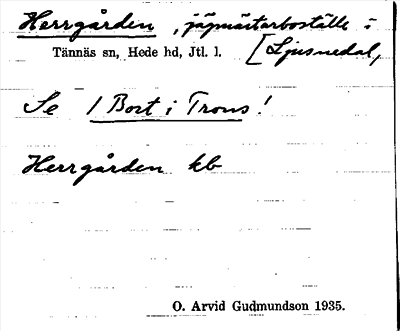 Herrgården, jägmästarboställe i
Tännäs sn, Hede hd, Jtl. l. [Ljusnedal,
Se / Bort i Trons!
Herrgården kb
O. Arvid Gudmundson 1935.